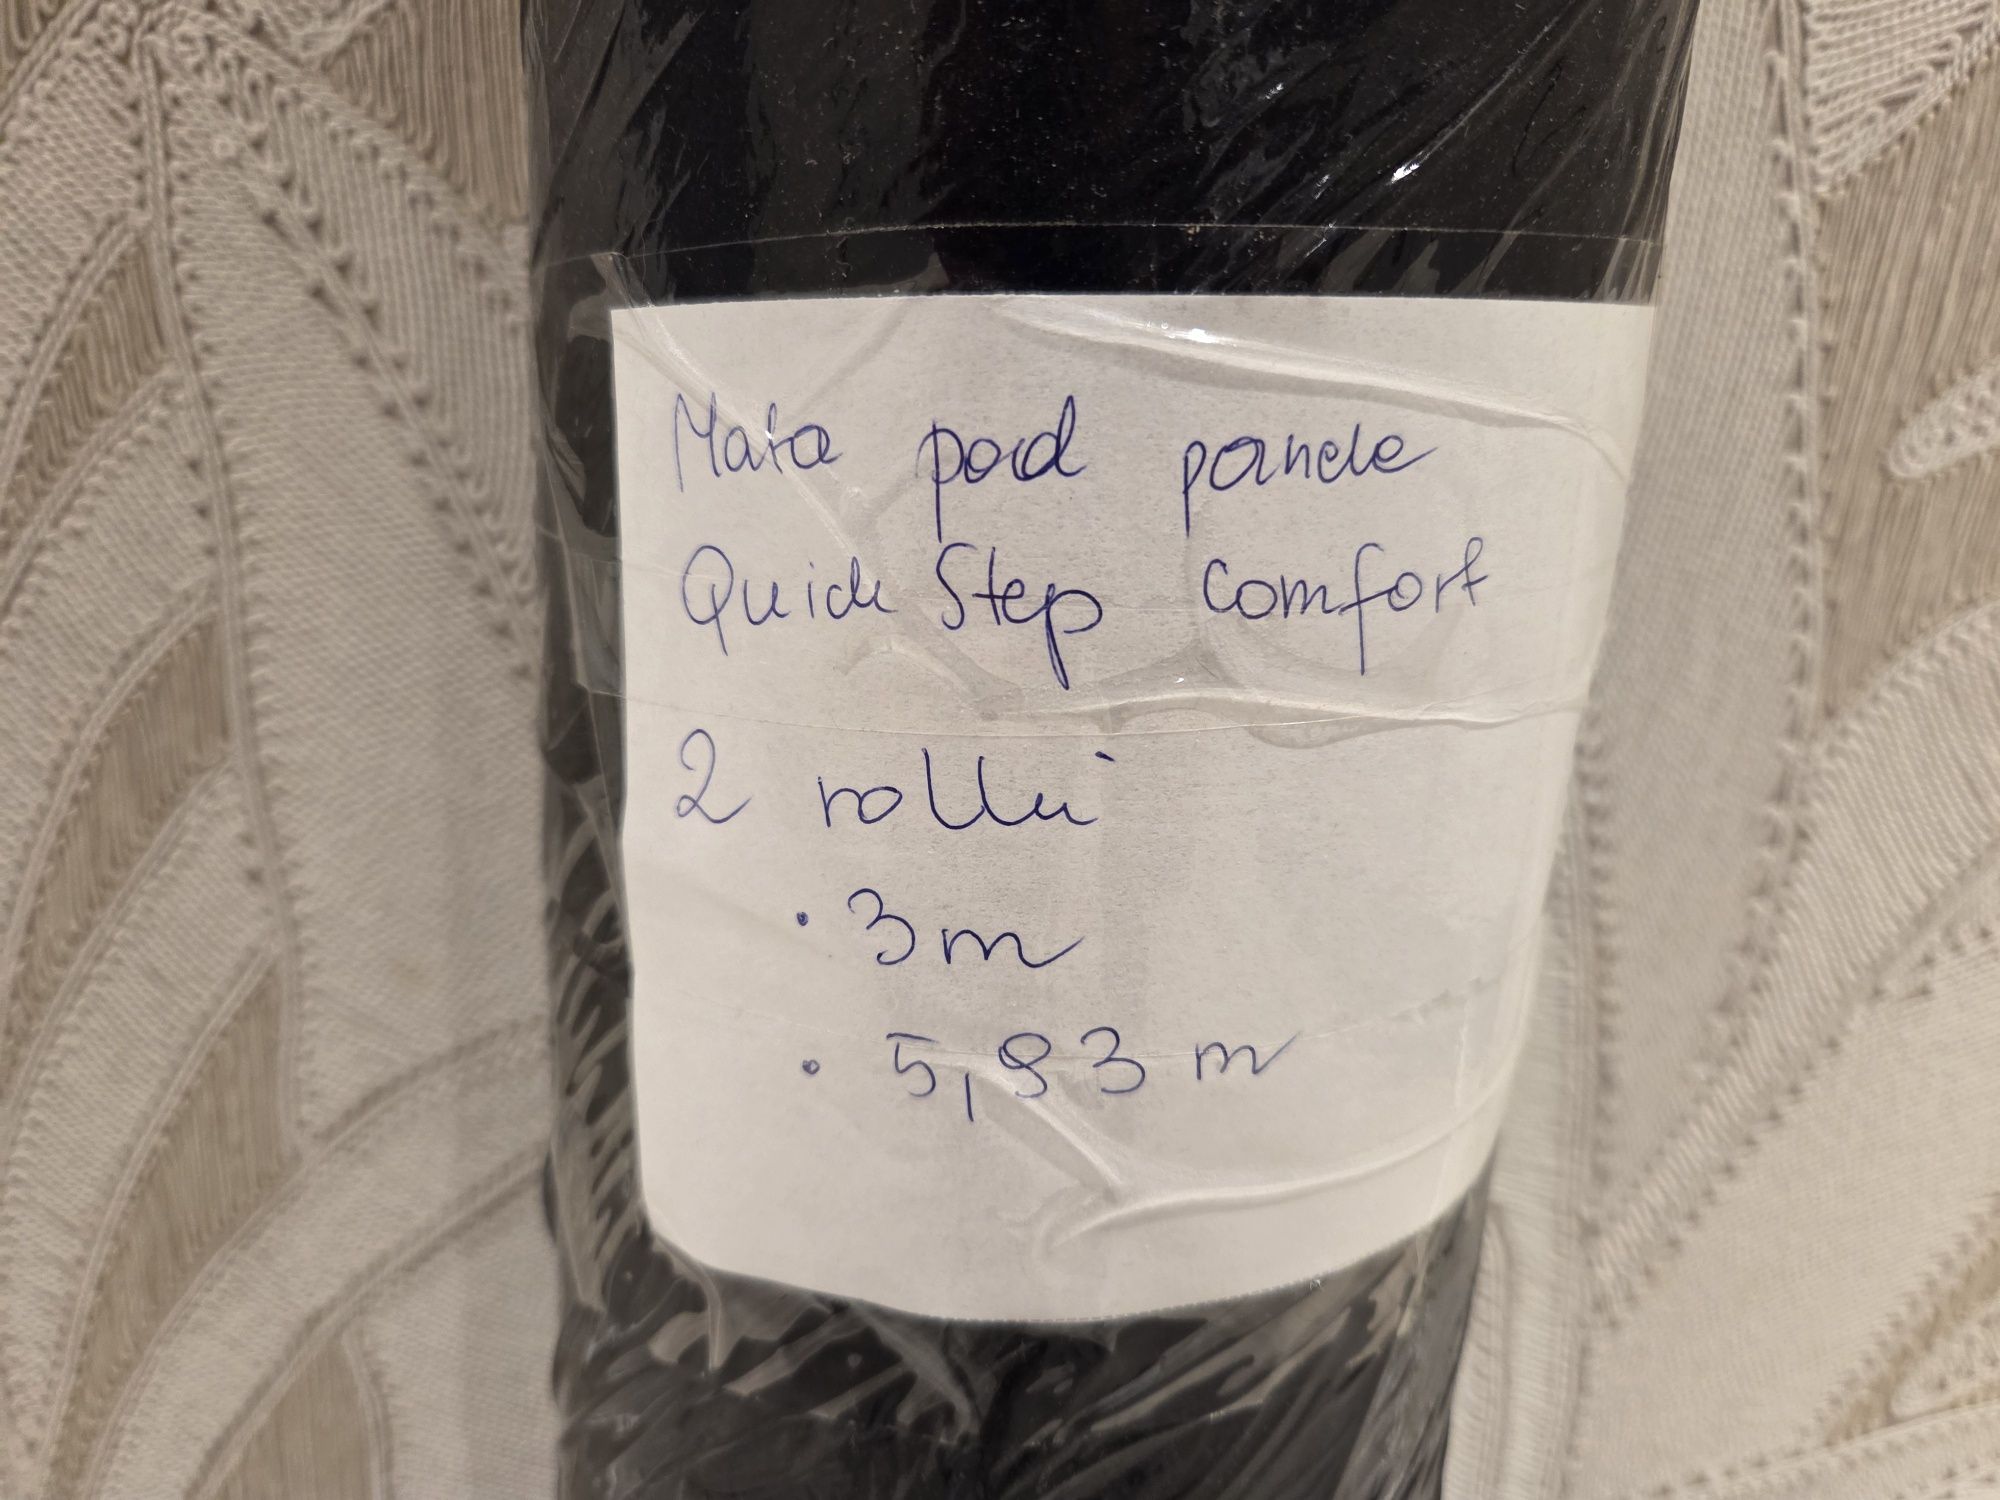 Mata pod panele
Quick Step comfort
2 rolki
• 3m
• 5,83 m